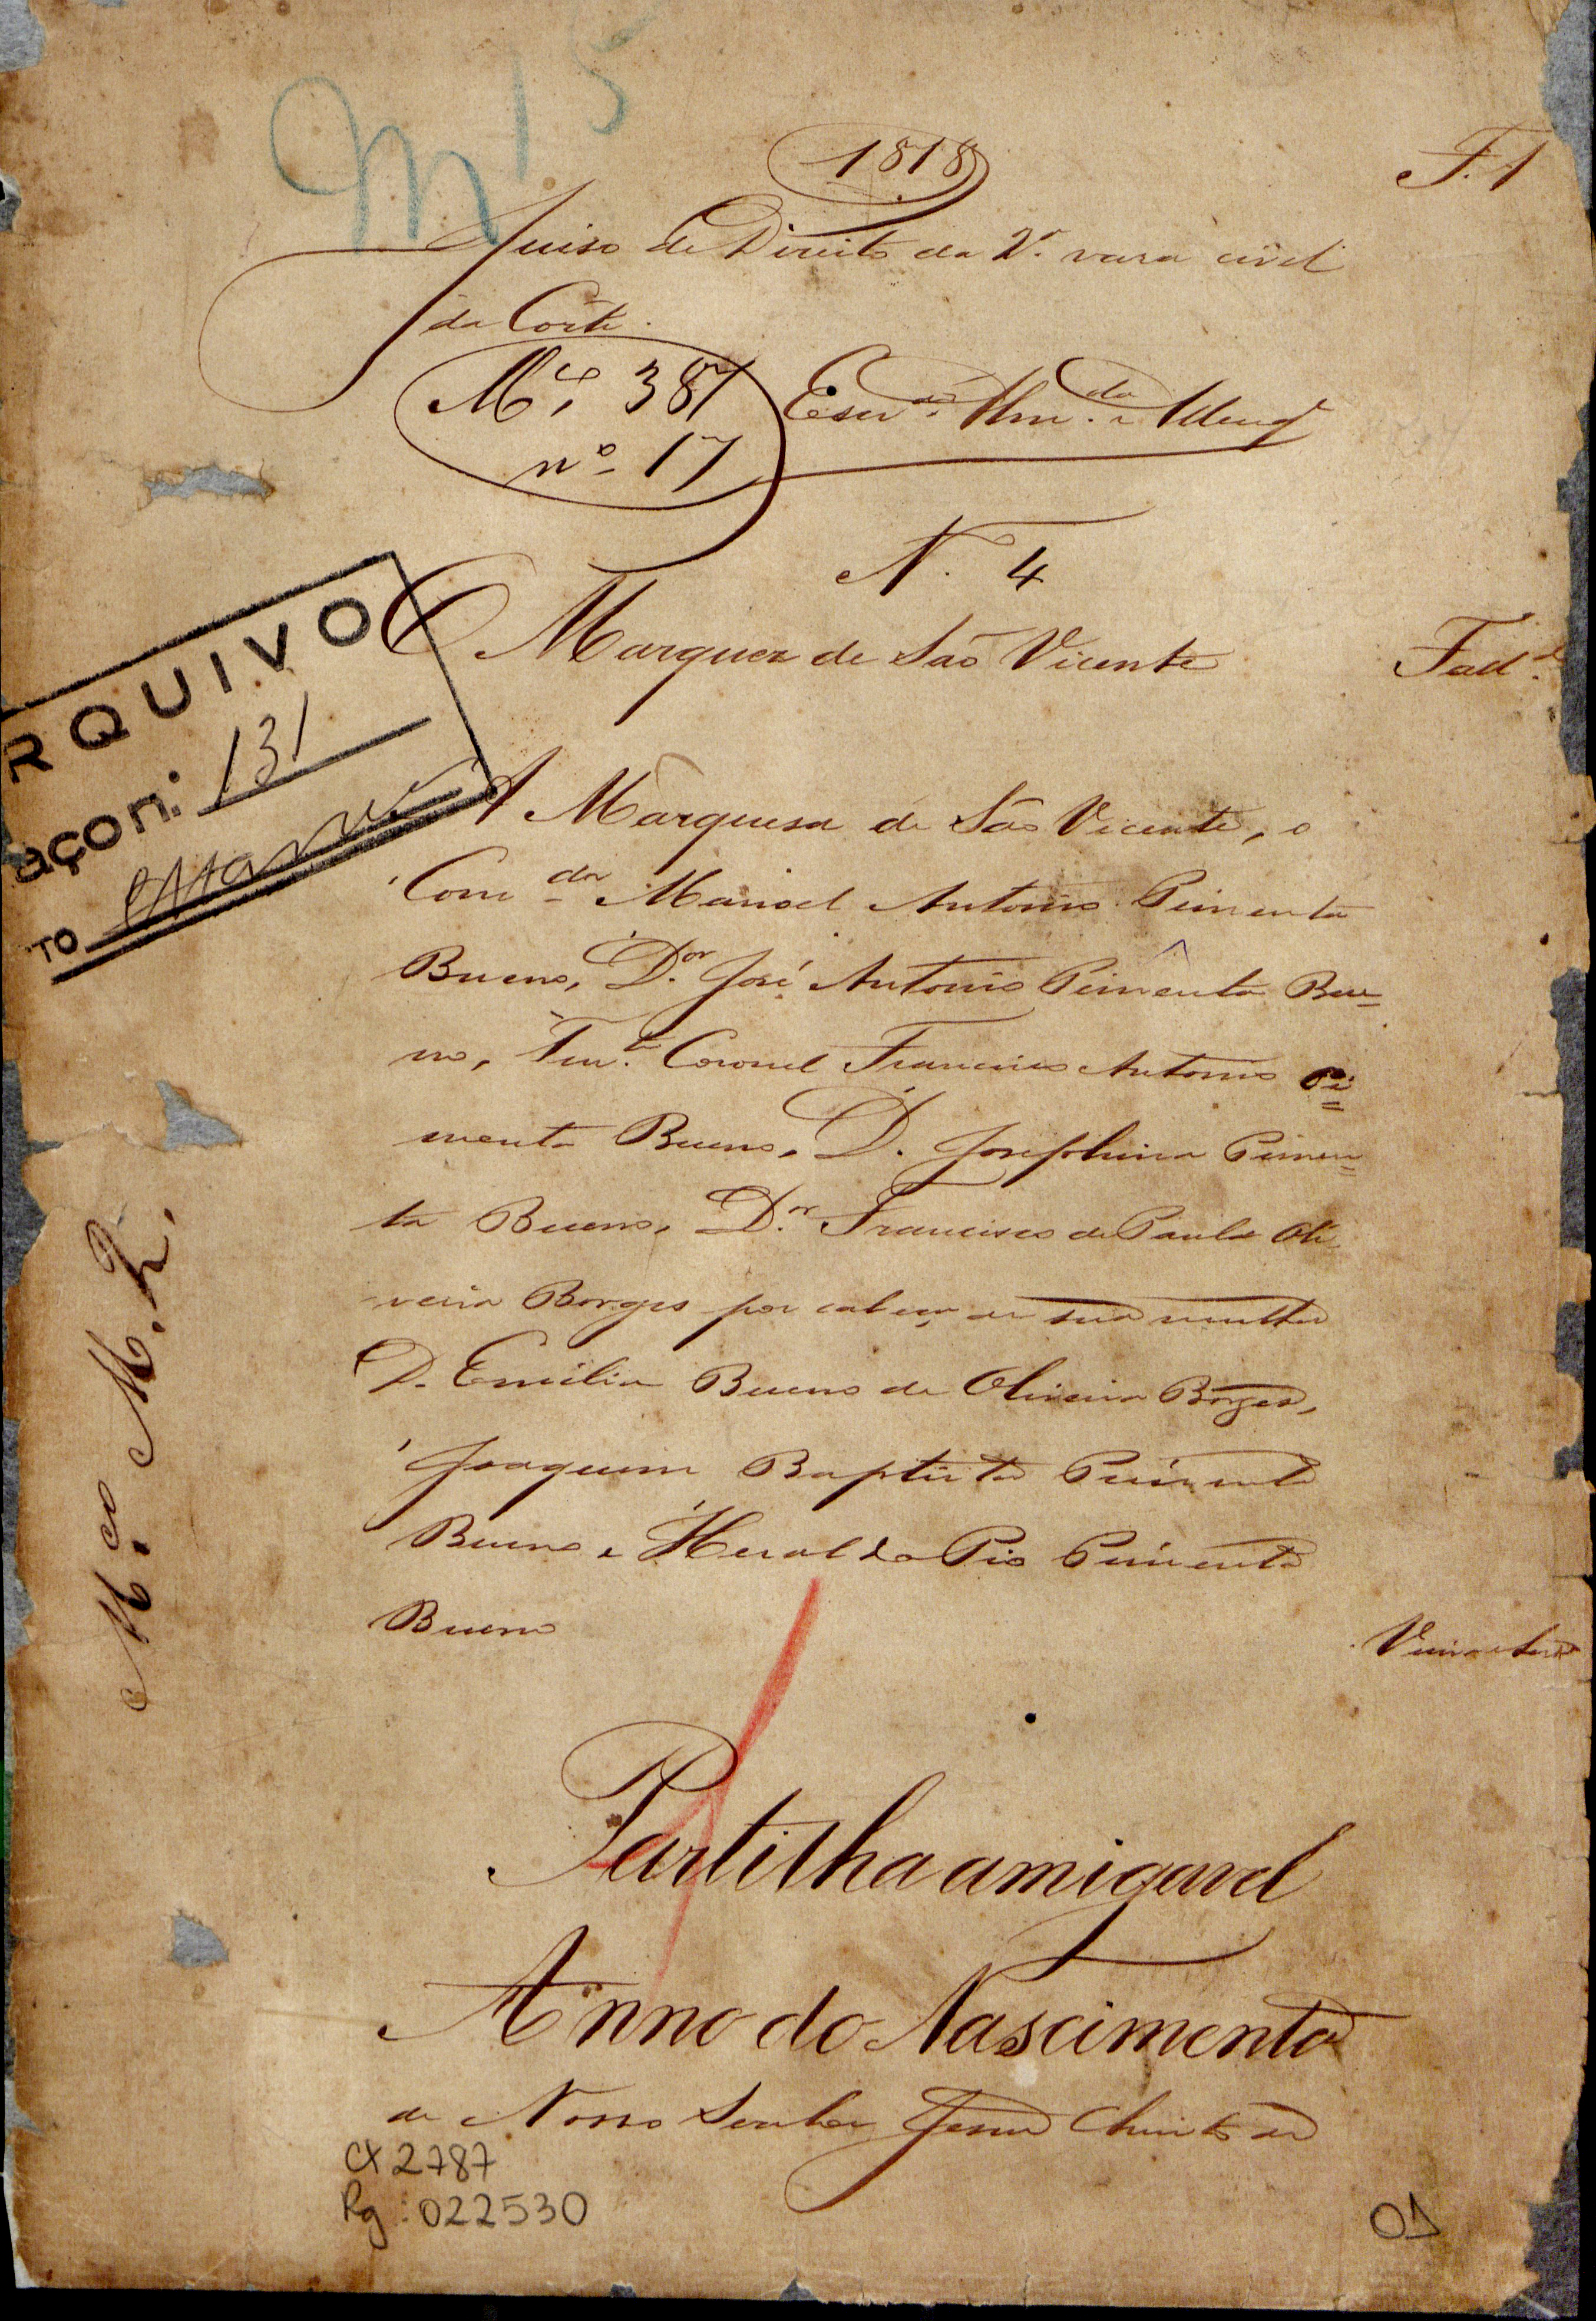 M 15
1818
F. 1
Juiso de Direito da 2ª vara civel
da Corte.
Mç. 387
nº 17
Escr.ão
N. 4
RQUIVO
açon: 131
TO
O Marquez de São Vicente
Fal.do
A Marquesa de São Vicente, o
Com.dor Manoel Antonio Pimenta
Bueno, D.or José Antonio Pimenta Bue=
no, Ten.te Coronel Francisco Antonio Pi=
menta Bueno, D. Josephina Pimen=
ta Bueno, D.or Francisco de Paula Oli
veira Borges por cabeça de sua mulher
D. Emilia Bueno de Oliveira Borges,
Joaquim Baptista Pimenta
Bueno e Heraldo Pio Pimenta
Bueno
M.ço M. R.
Partilha amigavel
Anno do Nascimento
de Nosso Senhor Jesus Christo de
CX 2787
Rg: 022530
01